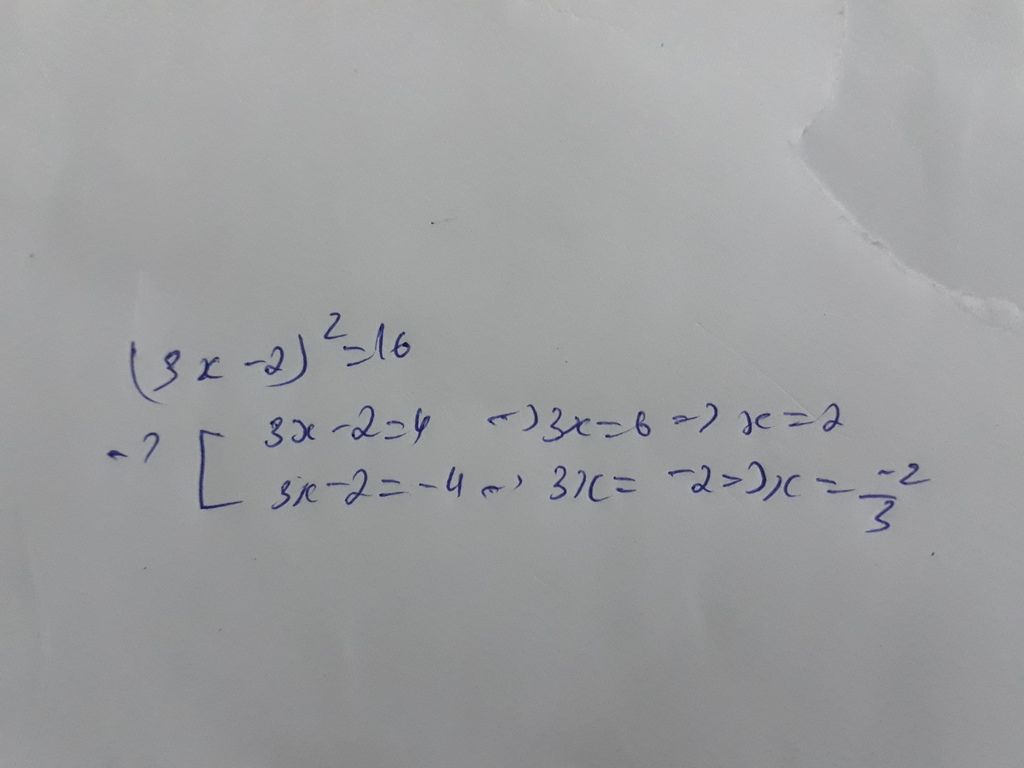 (3x-2)²=16
=> [ 3x-2=4 => 3x=6 => x=2
3x-2=-4 => 3x= -2 => x = -2/3